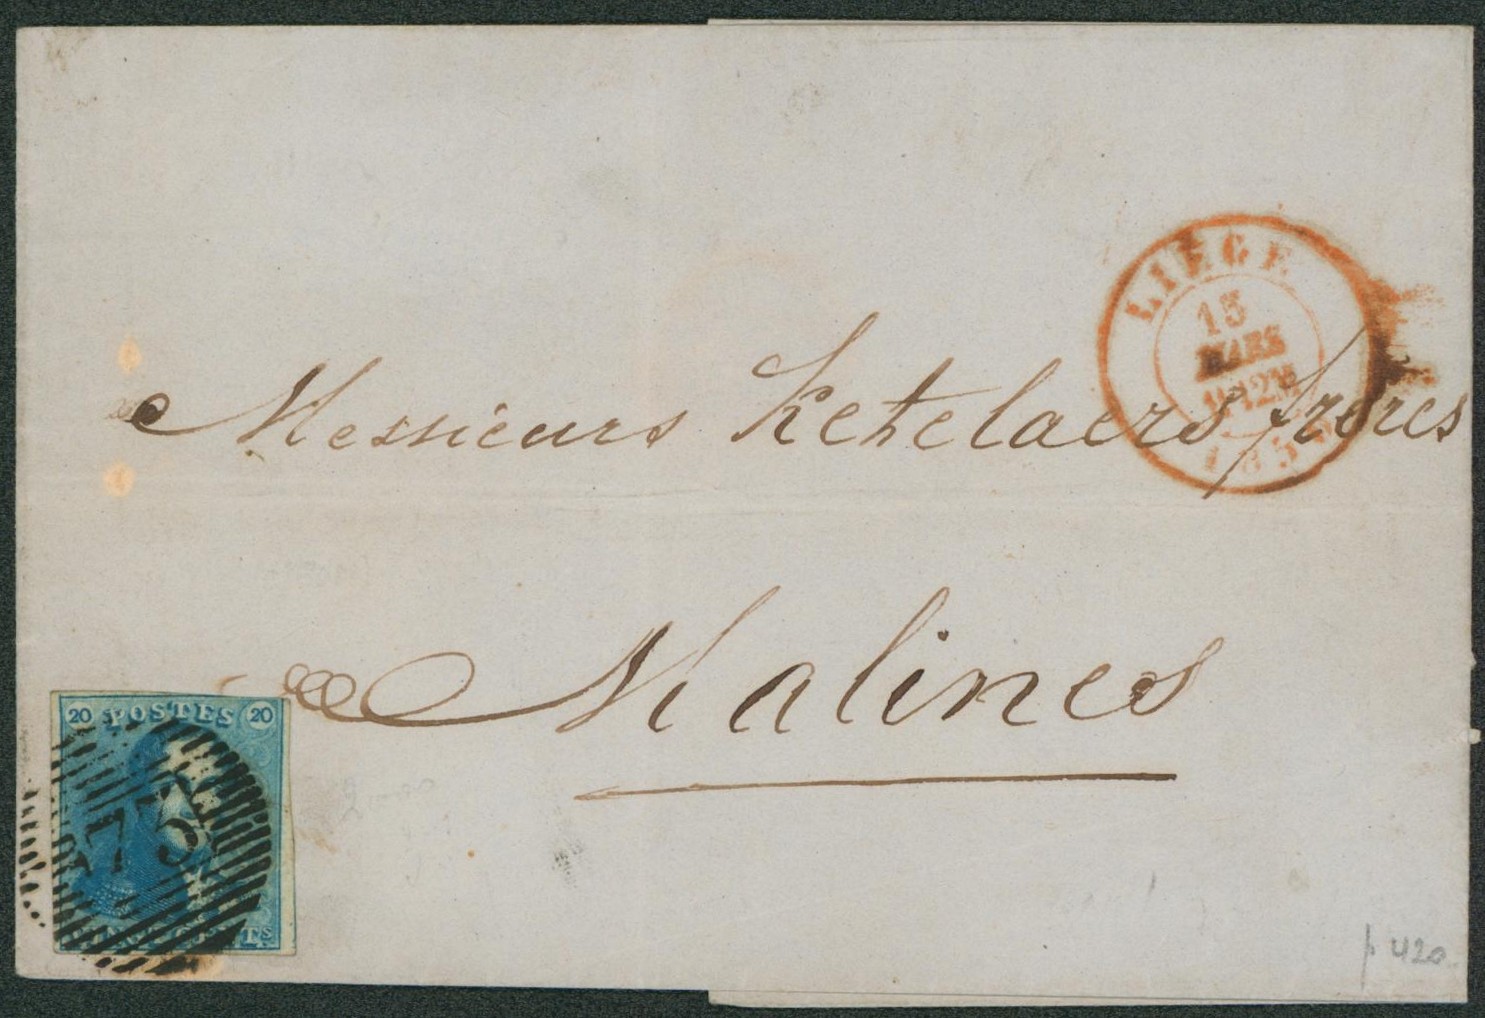 LIEGE
15
MARS
12
185
Messieurs Ketelaers frères
Malines
20 POSTES 20
73
p 420